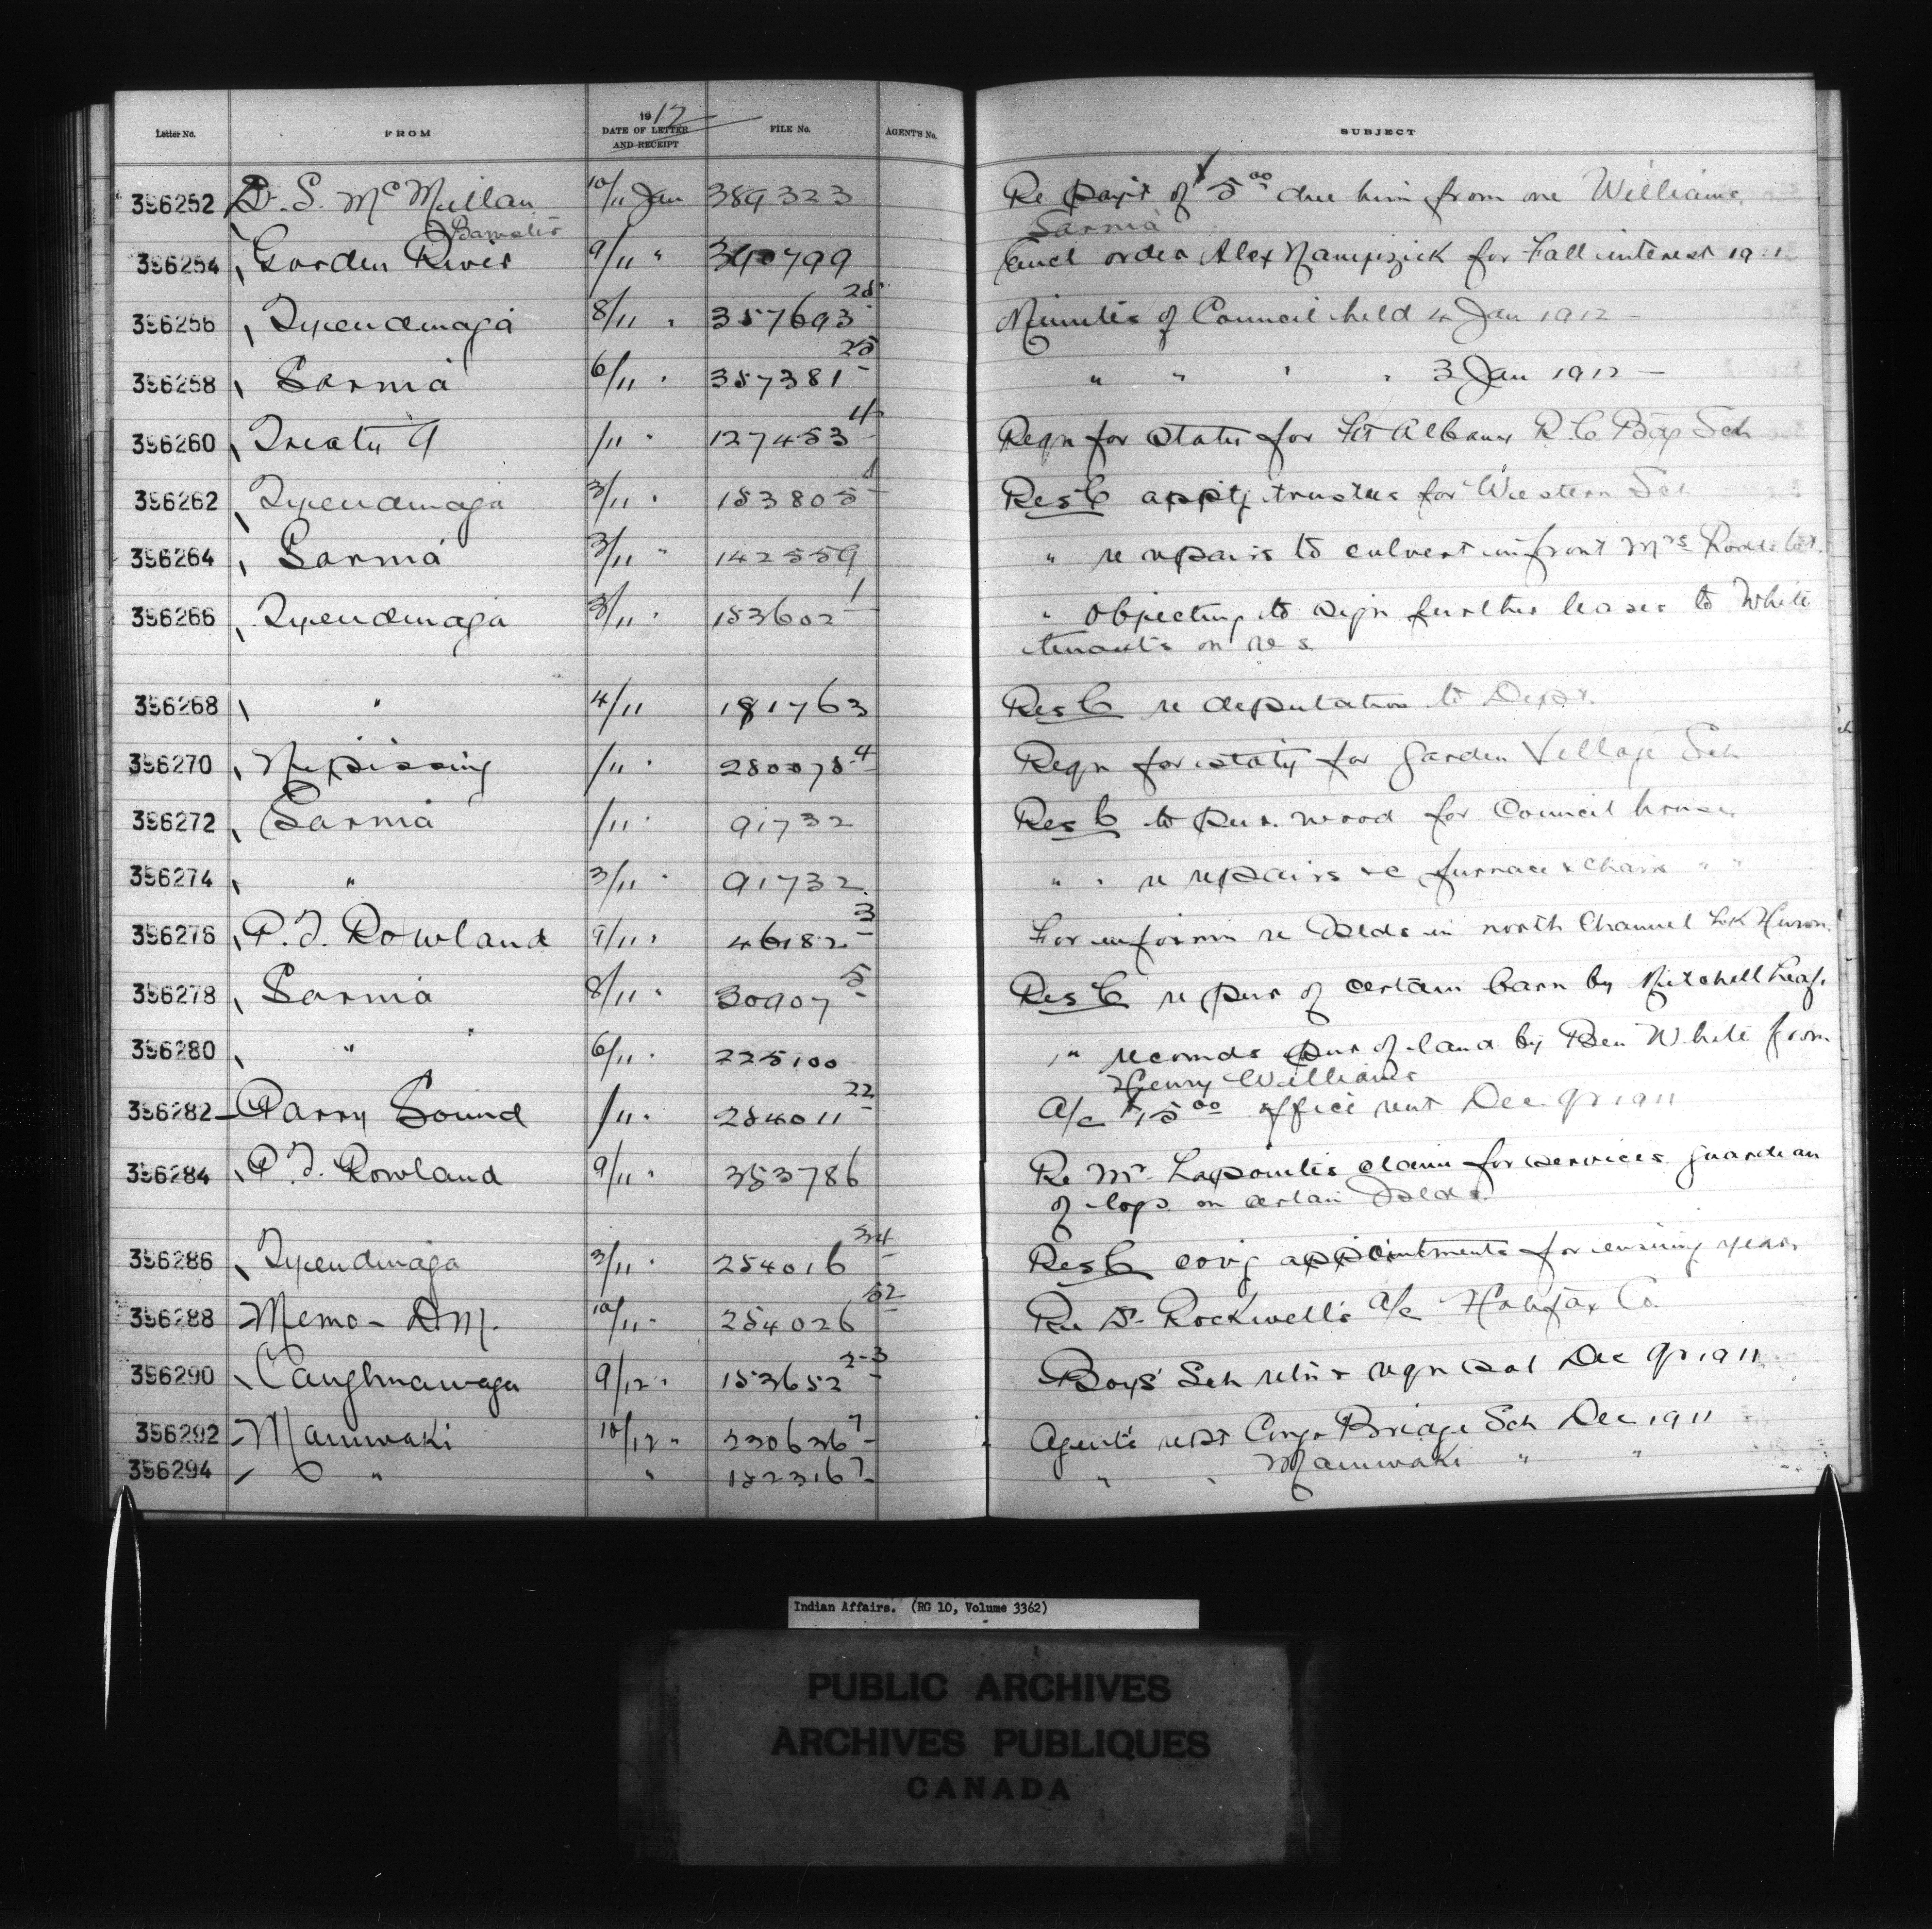 Letter No. FROM 1912 DATE OF LETTER AND RECEIPT FILE No. AGENT'S No. SUBJECT
396252 D. S. McMullan 10/11 Jan 389323 Re pay't of $5.00 due him from one Williams,
Barrister Sarnia
396254 Garden River 9/11 " 390799 Encl order Alex Nampizick for Fall interest 1911
396256 Tyendinaga 8/11 " 357693 28 Minutes of Council held 4 Jan 1912 -
396258 Sarnia 6/11 " 357381 25 " " " " 3 Jan 1912 -
396260 Treaty 9 /11 " 127453 4 Reqn for staty for Ft Albany R.C. Bdg Sch
396262 Tyendinaga 3/11 " 153805 1 Res C apptg trustees for Western Sch
396264 Sarnia 3/11 " 142559 " re repairs to culvert in front Mrs Rodds lot.
396266 Tyendinaga 3/11 " 153602 1 " objecting to sign further leases to White
tenants on res.
396268 " 4/11 181763 Res C re deputation to Dept.
396270 Nipissing /11 " 280078 4 Reqn for staty for Garden Village Sch
396272 Sarnia /11 " 91732 Res C to pur. wood for Council house
396274 " 3/11 " 91732 " " re repairs re furnace & chairs " "
396276 P. J. Rowland 9/11 " 46182 3 For informn re Islds in north Channel Lk Huron.
396278 Sarnia 8/11 " 30907 5 Res C re pur of certain barn by Mitchell Leaf.
396280 " " 6/11 " 225100 " recomds pur of land by Ben White from
Henry Williams
396282 Parry Sound /11 " 254011 22 A/c $15.00 office rent Dec qr 1911
396284 P. J. Rowland 9/11 " 353786 Re Mr. Lapointe's claim for services guardian
of logs on certain Islds.
396286 Tyendinaga 3/11 " 254016 34 Res C covg appointments for ensuing year
396288 Memo - D.M. 10/11 " 254026 52 Re Dr. Rockwell's A/c Halifax Co.
396290 Caughnawaga 9/12 " 153652 2-3 Boys' Sch retn & reqn sal Dec qr 1911
396292 Maniwaki 10/12 " 230636 7 Agent's rept Congo Bridge Sch Dec 1911
396294 " " 152316 7 " " Maniwaki " "
Indian Affairs. (RG 10, Volume 3362)
PUBLIC ARCHIVES
ARCHIVES PUBLIQUES
CANADA